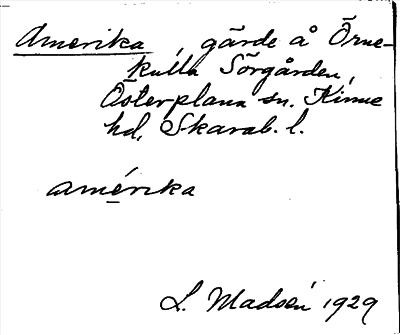 Amerika, gärde å Örne-
kulla Sörgården,
Österplana sn. Kinne
hd, Skarab. l.
amérika
L. Madsén 1929